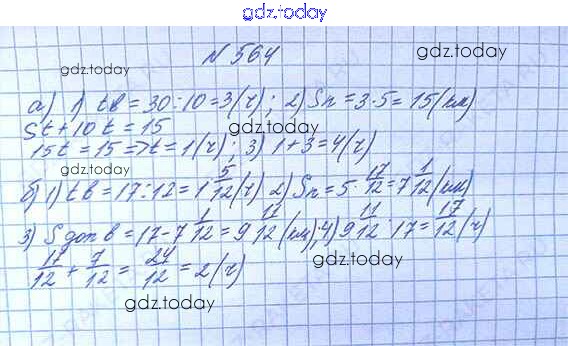 gdz.today
N 564
gdz.today
gdz.today
а) 1) tв = 30 : 10 = 3(ч); 2) Sп = 3·5 = 15(км)
5t + 10t = 15
gdz.today
15t = 15 => t = 1(ч); 3) 1 + 3 = 4(ч)
gdz.today
б) 1) tв = 17 : 12 = 1 5/12(ч) 2) Sп = 5 · 17/12 = 7 1/12(км)
gdz.today
3) S доп в = 17 - 7 1/12 = 9 11/12(км); 4) 9 11/12 : 17 = 17/12(ч)
17/12 + 7/12 = 24/12 = 2(ч)
gdz.today
gdz.today